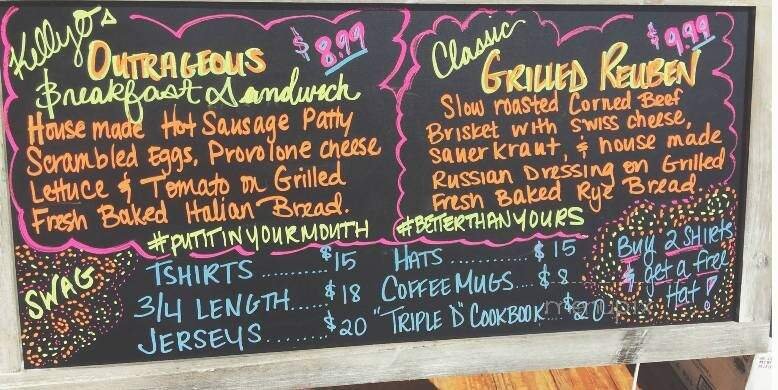 Kelly O's
OUTRAGEOUS
$8.99
Breakfast Sandwich
House made Hot Sausage Patty
Scrambled Eggs, Provolone cheese
Lettuce & Tomato on Grilled
Fresh Baked Italian Bread.
#PUTITINYOURMOUTH
Classic
$9.99
GRILLED REUBEN
Slow roasted Corned Beef
Brisket with swiss cheese,
sauerkraut, & house made
Russian Dressing on Grilled
Fresh Baked Rye Bread.
#BETERTHANYOURS
SWAG
TSHIRTS ............ $15
3/4 LENGTH...... $18
JERSEYS........... $20
HATS ............... $15
COFFEE MUGS.... $8
"TRIPLE D" COOKBOOK... $20
Buy 2 shirts
& get a free
Hat!